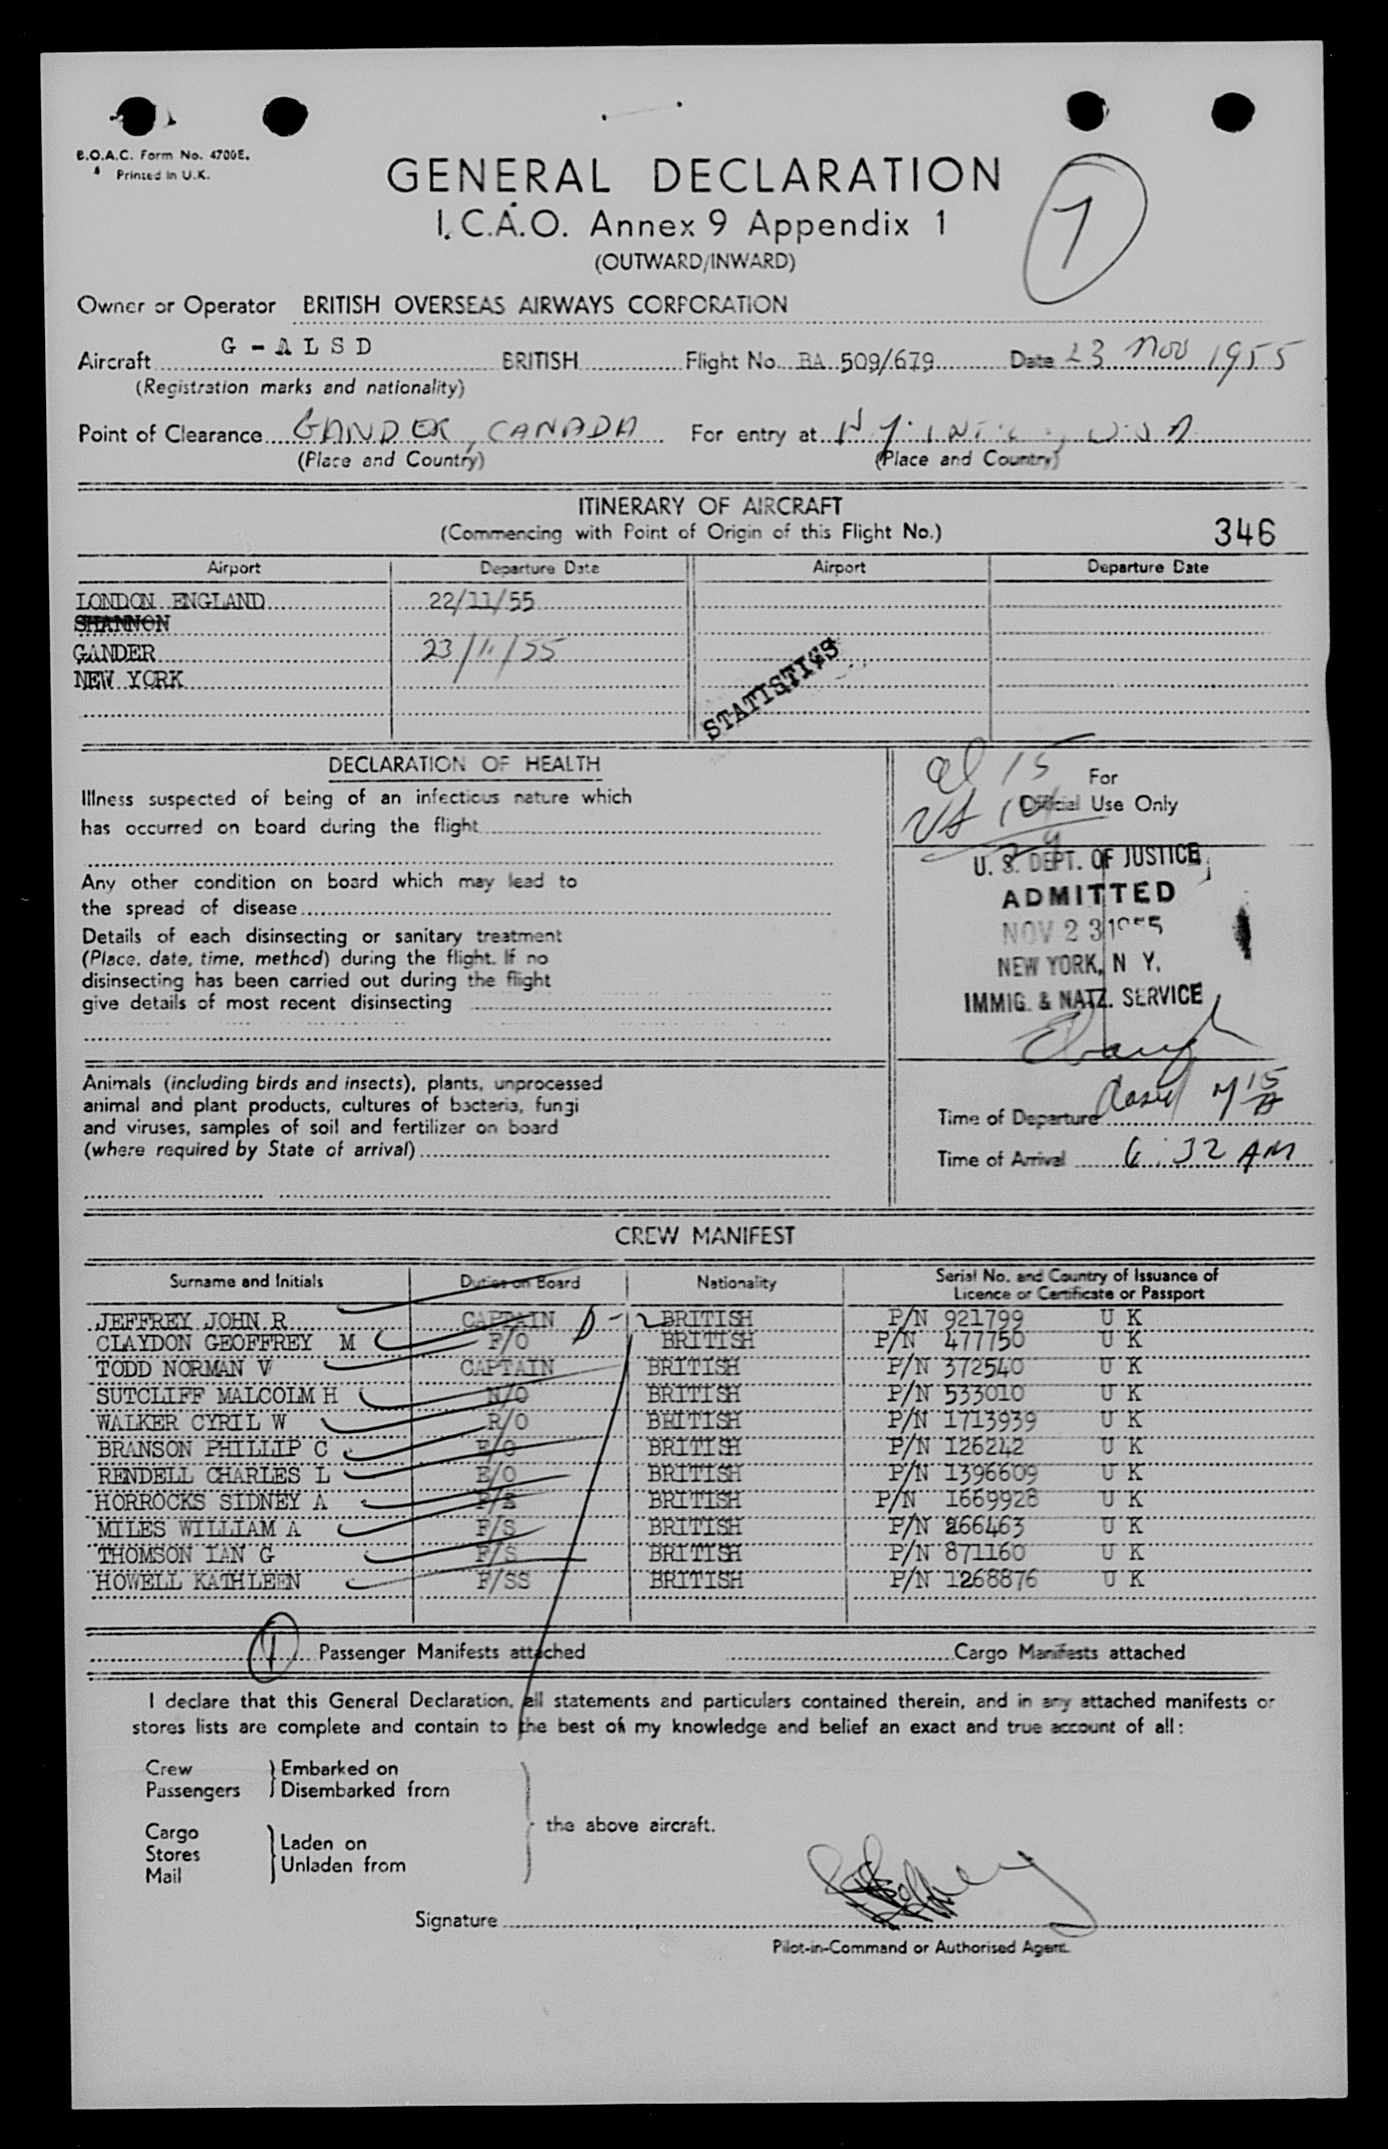 B.O.A.C. Form No. 4700E.
Printed in U.K.
GENERAL DECLARATION
I.C.A.O. Annex 9 Appendix 1
(OUTWARD/INWARD)
7
Owner or Operator BRITISH OVERSEAS AIRWAYS CORPORATION
Aircraft G-ALSD BRITISH Flight No. BA 509/679 Date 23 Nov 1955
(Registration marks and nationality)
Point of Clearance GANDER, CANADA For entry at N.Y. INT'L, U.S.A.
(Place and Country) (Place and Country)
ITINERARY OF AIRCRAFT
(Commencing with Point of Origin of this Flight No.) 346
Airport Departure Date Airport Departure Date
LONDON ENGLAND 22/11/55
SHANNON
GANDER 23/11/55
NEW YORK
STATISTICS
DECLARATION OF HEALTH
Illness suspected of being of an infectious nature which
has occurred on board during the flight
Any other condition on board which may lead to
the spread of disease
Details of each disinsecting or sanitary treatment
(Place, date, time, method) during the flight. If no
disinsecting has been carried out during the flight
give details of most recent disinsecting
15
For
Official Use Only
U. S. DEPT. OF JUSTICE
ADMITTED
NOV 23 1955
NEW YORK, N Y.
IMMIG. & NATZ. SERVICE
Animals (including birds and insects), plants, unprocessed
animal and plant products, cultures of bacteria, fungi
and viruses, samples of soil and fertilizer on board
(where required by State of arrival)
Time of Departure
Time of Arrival 6:32 AM
CREW MANIFEST
Surname and Initials Duties on Board Nationality Serial No. and Country of Issuance of
Licence or Certificate or Passport
JEFFREY JOHN R CAPTAIN D-2 BRITISH P/N 921799 U K
CLAYDON GEOFFREY M F/O BRITISH P/N 477750 U K
TODD NORMAN V CAPTAIN BRITISH P/N 372540 U K
SUTCLIFF MALCOLM H N/O BRITISH P/N 533010 U K
WALKER CYRIL W R/O BRITISH P/N 1713939 U K
BRANSON PHILLIP C E/O BRITISH P/N 126242 U K
RENDELL CHARLES L E/O BRITISH P/N 1396609 U K
HORROCKS SIDNEY A F/S BRITISH P/N 1669928 U K
MILES WILLIAM A F/S BRITISH P/N 266463 U K
THOMSON IAN G F/S BRITISH P/N 871160 U K
HOWELL KATHLEEN F/SS BRITISH P/N 1268876 U K
1 Passenger Manifests attached Cargo Manifests attached
I declare that this General Declaration, all statements and particulars contained therein, and in any attached manifests or
stores lists are complete and contain to the best of my knowledge and belief an exact and true account of all:
Crew
Passengers
Embarked on
Disembarked from
Cargo
Stores
Mail
Laden on
Unladen from
the above aircraft.
Signature
Pilot-in-Command or Authorised Agent.